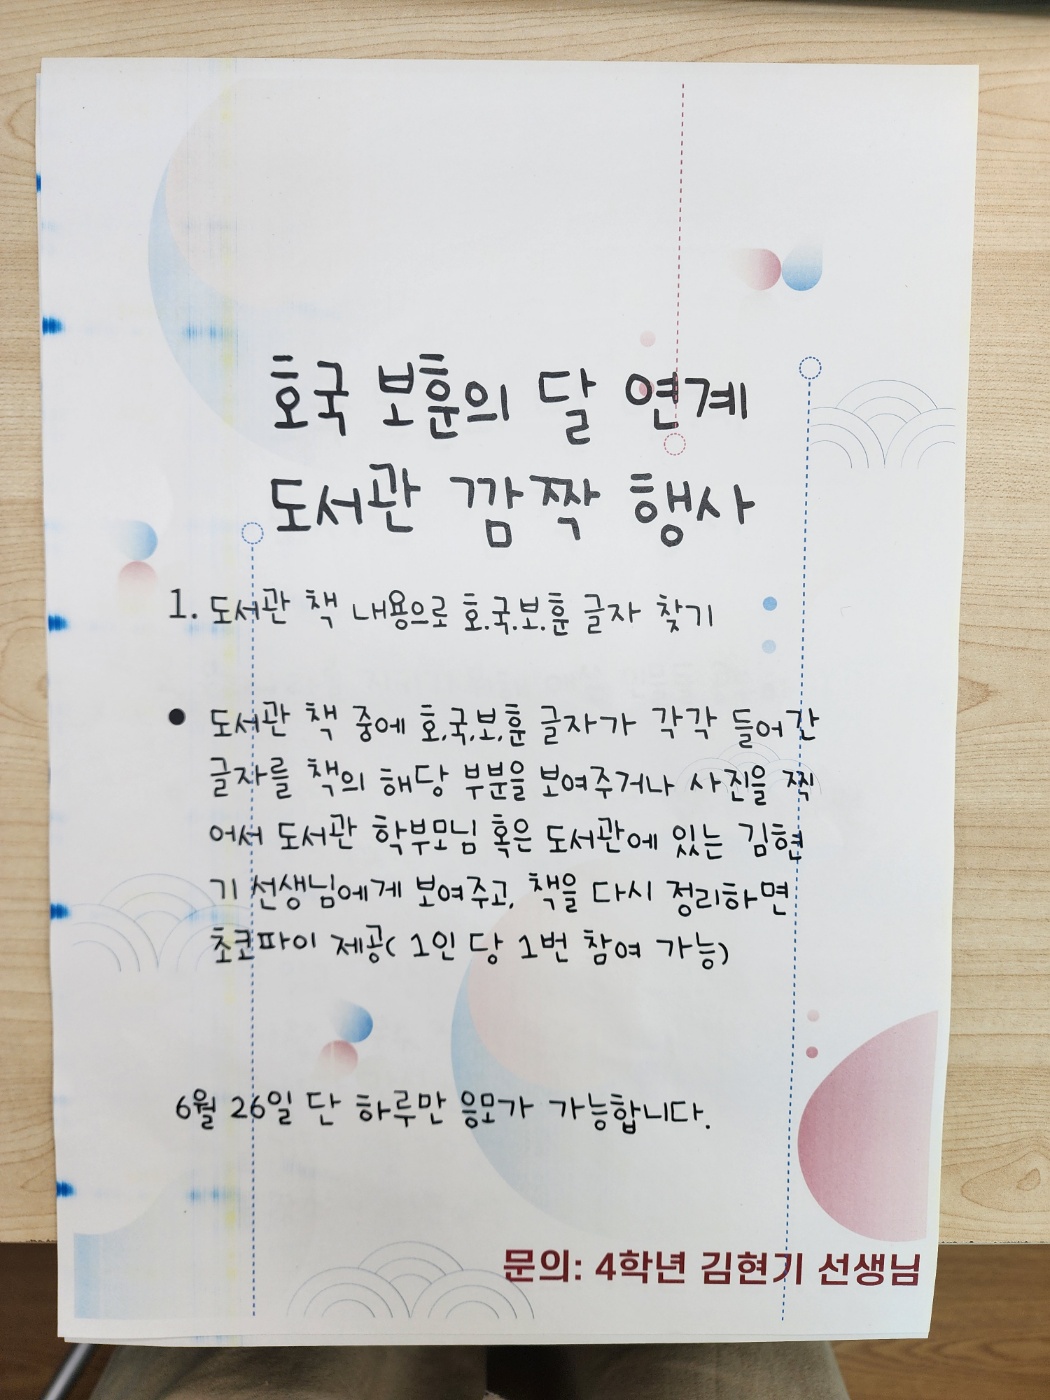 호국 보훈의 달 연계
도서관 깜짝 행사
1. 도서관 책 내용으로 호.국.보.훈 글자 찾기
● 도서관 책 중에 호,국,보,훈 글자가 각각 들어간
글자를 책의 해당 부분을 보여주거나 사진을 찍
어서 도서관 학부모님 혹은 도서관에 있는 김현
기 선생님에게 보여주고, 책을 다시 정리하면
초코파이 제공( 1인 당 1번 참여 가능)
6월 26일 단 하루만 응모가 가능합니다.
문의: 4학년 김현기 선생님